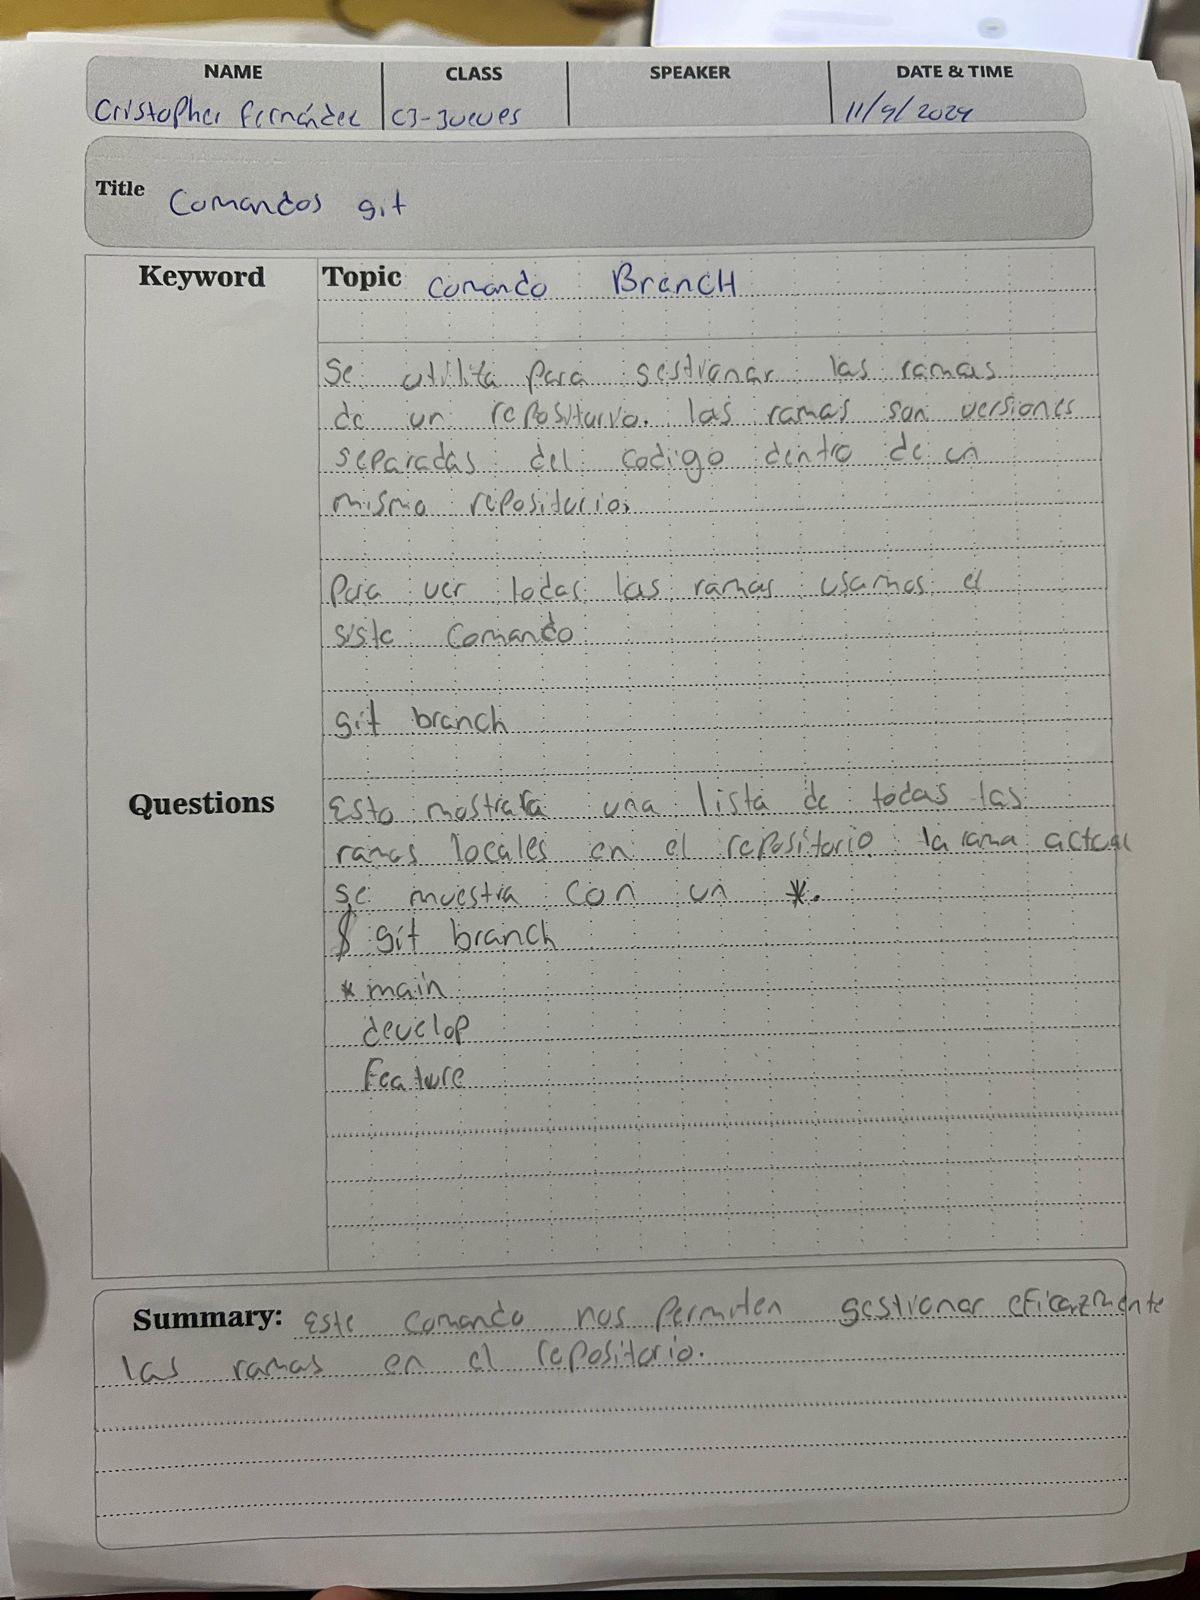 NAME CLASS SPEAKER DATE & TIME
Cristopher Fernández C3-Jueves 11/9/2024
Title Comandos git
Keyword Topic Comando BrancH
Se utiliza para gestionar las ramas
de un repositorio. las ramas son versiones
separadas del codigo dentro de un
mismo repositorio.
Para ver todas las ramas usamos el
siste comando
git branch
Questions Esto mostrara una lista de todas las
ramas locales en el repositorio la rama actual
se muestra con un *.
$ git branch
* main
develop
Feature
Summary: Este comando nos permiten gestionar eficazmente
las ramas en el repositorio.